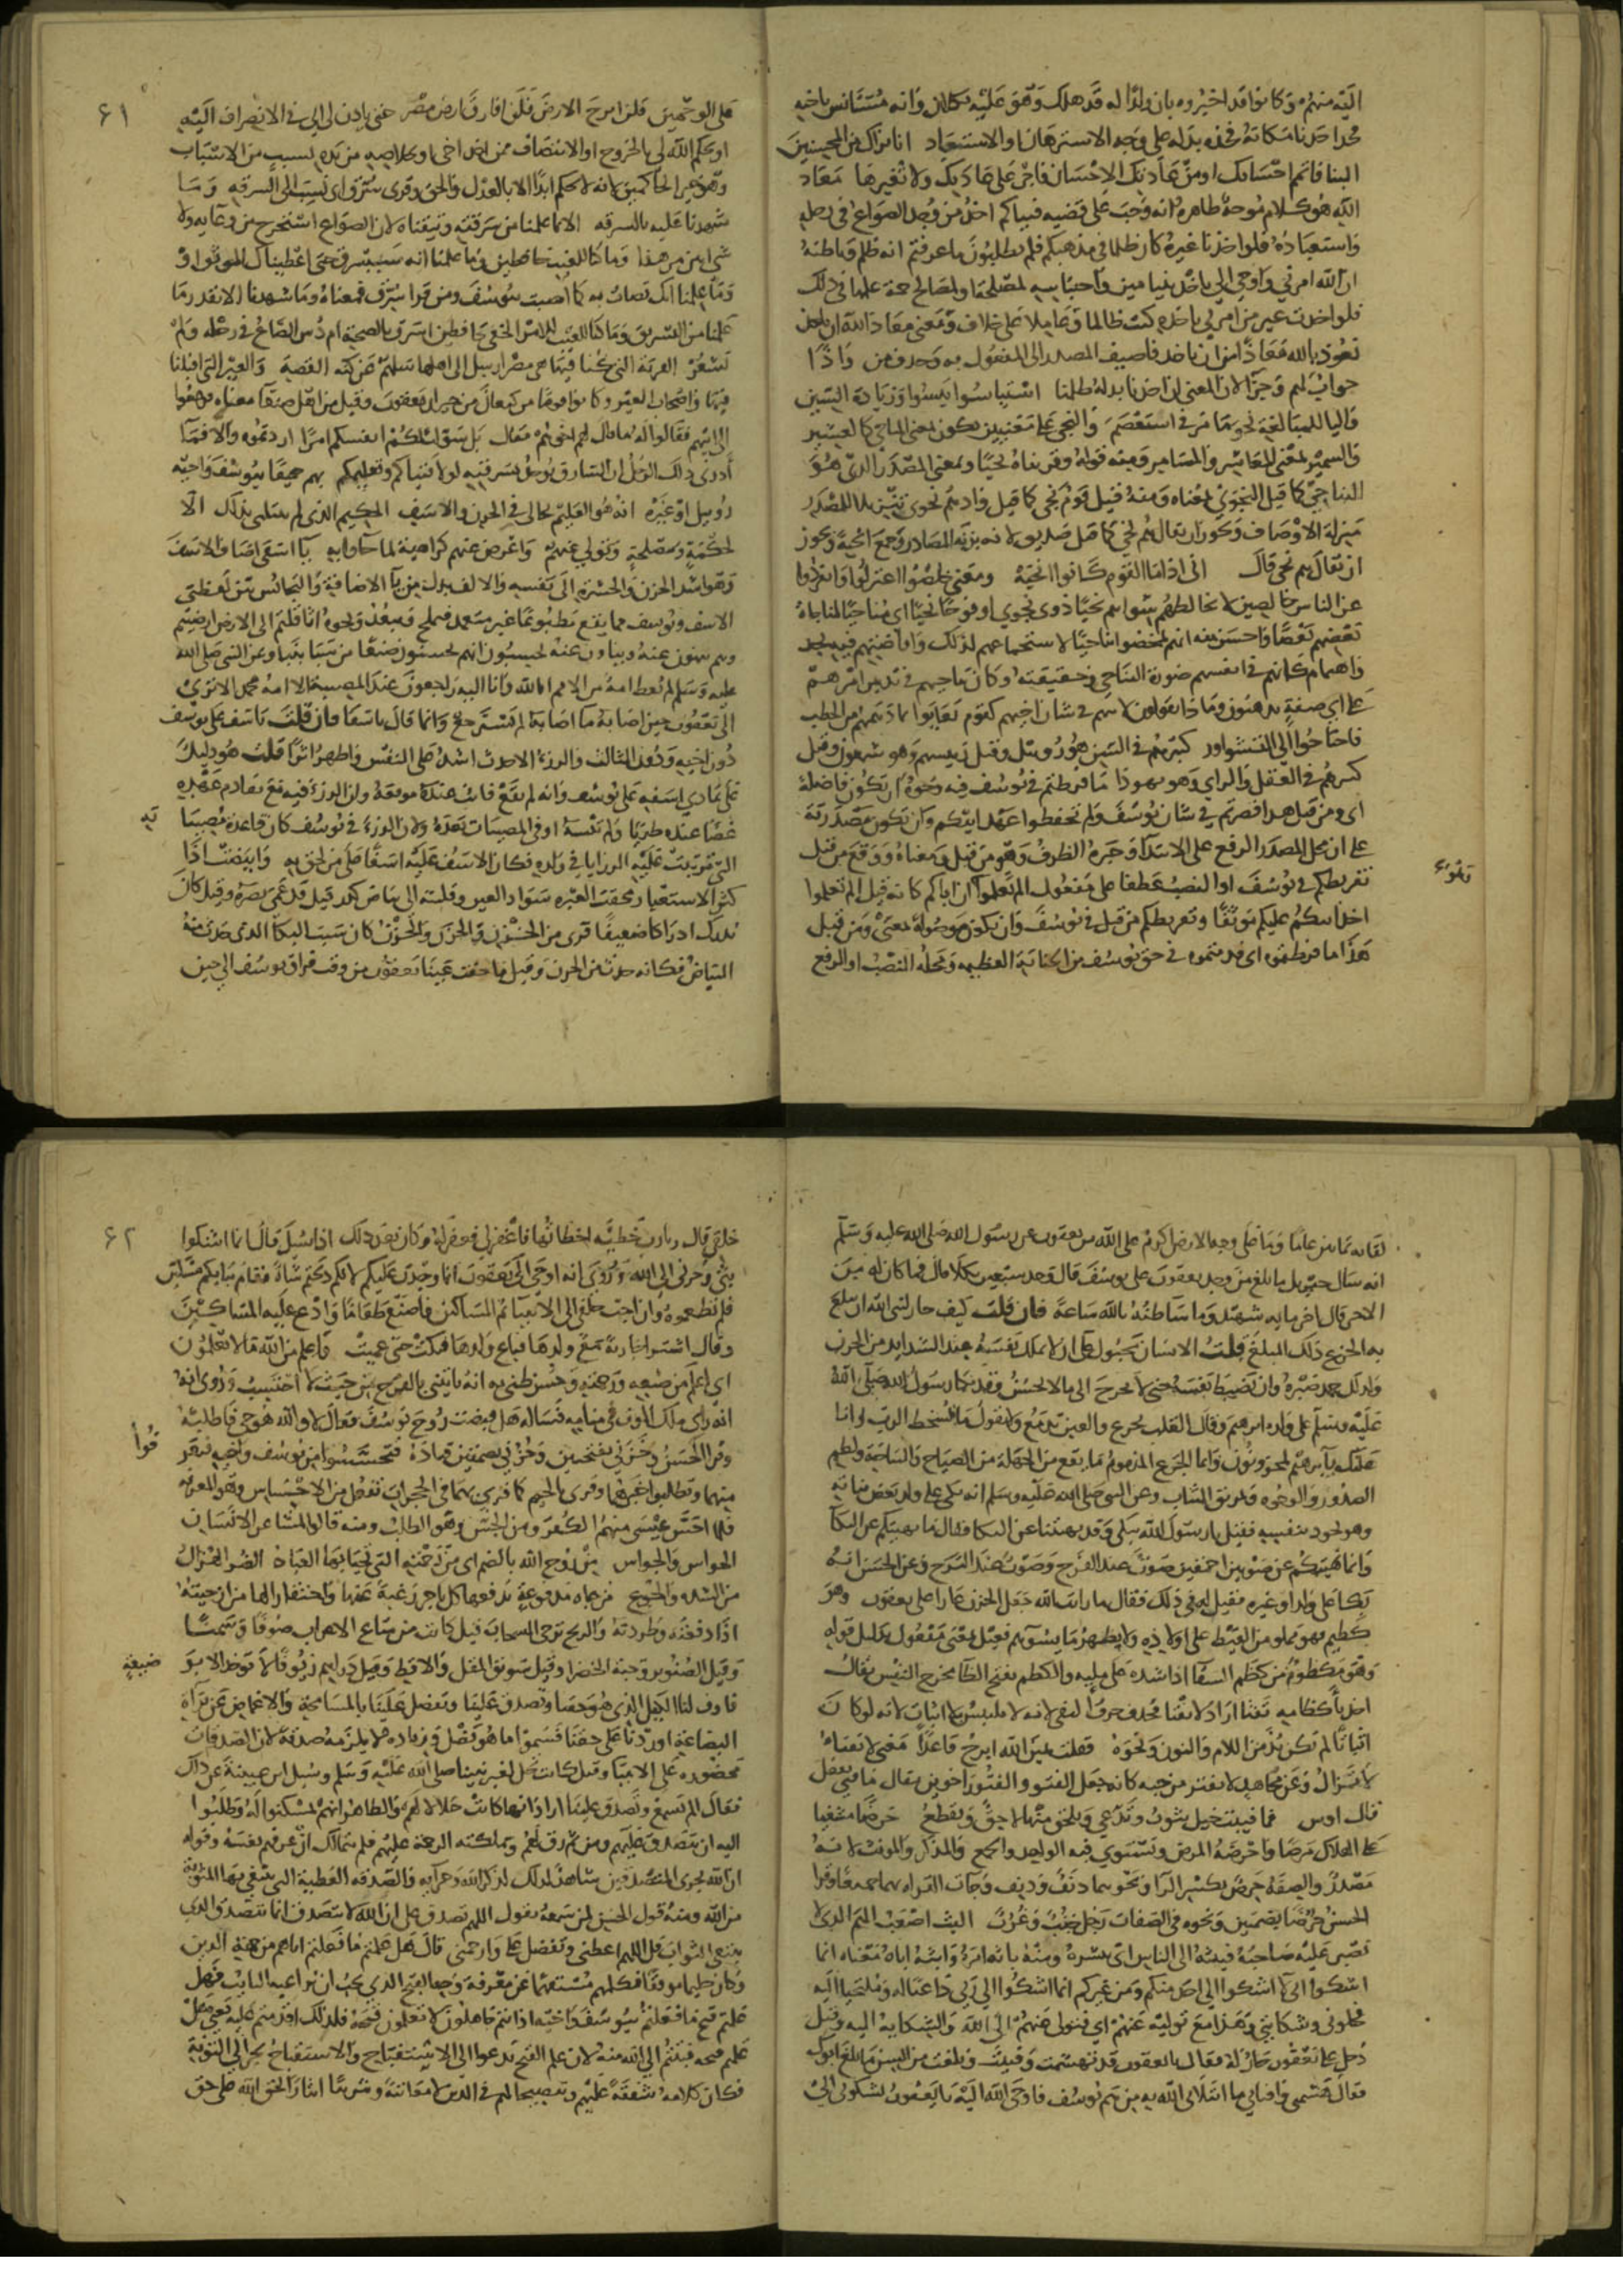 اليه منهم وكانوا قد اخبروه بان ولدا له قد هلك وهو عليه ثكلان وانه مستانس باخيه
فخذ احدنا مكانه فخذه بدله على وجه الاسترهان او الاستعباد انا نراك من المحسنين
الينا فاتمم احسانك او من عادتك الاحسان فاجر على عادتك ولا تغيرها معاذ
الله هو كلام موجه ظاهره انه وجب على قضية فتياكم اخذ من وجد الصواع في رحله
واستعباده فلو اخذنا غيره كان ظلما في مذهبكم فلم تطلبون ما عرفتم انه ظلم وباطنه
ان الله امرني واوحى الي باخذ بنيامين واحتباسه لمصلحة او لمصالح جمة علمها في ذلك
فلو اخذت غير من امرني باخذه كنت ظالما وعاملا على خلاف ومعنى معاذ الله ان ناخذ
نعوذ بالله معاذا من ان ناخذ فاضيف المصدر الى المفعول به وحذف من واذا
جواب لهم وجزا لان المعنى ان اخذنا بدله ظلمنا استياسوا يئسوا وزيادة السين
والتا للمبالغة نحو ما مر في استعصم والنجي على معنيين يكون بمعنى المناجي كالعشير
والسمير بمعنى المعاشر والمسامر ومنه قوله وقربناه نجيا وبمعنى المصدر الذي هو
التناجي كما قيل النجوى بمعناه ومنه قيل قوم نجي كما قيل واذ هم نجوى تنزيلا للمصدر
منزلة الاوصاف ويجوز ان يقال هم نجي كما قيل هم صديق لانه بزنة المصادر وجمع انجية ويجوز
ان يقال هم نجي قال اني اذا ما القوم كانوا انجيه ومعنى خلصوا اعتزلوا وانفردوا
عن الناس خالصين لا يخالطهم سواهم نجيا ذوي نجوى او فوجا نجيا اي مناجيا لمناجاة
بعضهم بعضا واحسن منه انهم تمحضوا تناجيا لاستجماعهم لذلك وافاضتهم فيه بجد
واهتمام كانهم في انفسهم صورة التناجي وحقيقته وكان تناجيهم في تدبير امرهم
على اي صفة يذهبون وماذا يقولون لابيهم في شان اخيهم كقوم تعايوا بما دهمهم من الخطب
فاحتاجوا الى التشاور كبيرهم في السن هو روبيل وقيل رئيسهم وهو شمعون وقيل
كبيرهم في العقل والراي وهو يهوذا ما فرطتم في يوسف فيه وجوه ان تكون ما صلة
اي ومن قبل هذا قصرتم في شان يوسف ولم تحفظوا عهد ابيكم وان تكون مصدرية
على ان محل المصدر الرفع على الابتدا وخبره الظرف وهو من قبل ومعناه ووقع من قبل
تفريطكم في يوسف او النصب عطفا على مفعول الم تعلموا ان اباكم كانه قيل الم تعلموا
اخذ ابيكم عليكم موثقا وتفريطكم من قبل في يوسف وان تكون موصولة بمعنى ومن قبل
هذا ما فرطتموه اي قدمتموه في حق يوسف من الجناية العظيمة ومحله النصب او الرفع
٦١
على الوجهين فلن ابرح الارض فلن افارق ارض مصر حتى ياذن لي ابي في الانصراف اليه
او يحكم الله لي بالخروج او الانتصاف ممن اخذ اخي او بخلاصه من يده بسبب من الاسباب
وهو خير الحاكمين لانه لا يحكم ابدا الا بالعدل والحق وقرى سرق اي نسب الى السرقه وما
شهدنا عليه بالسرقه الا بما علمنا من سرقته وتيقناه لان الصواع استخرج من وعايه ولا
شي ابين من هذا وما كنا للغيب حافظين وما علمنا انه سيسرق حين اعطيناك الموثق او
وما علمنا انك تصاب به كما اصبت بيوسف ومن قرا سرق فمعناه وما شهدنا الا بقدر ما
علمنا من التسريق وما كنا للغيب للامر الخفي حافظين اسرق بالصحة ام دس الصاع في رحله ولم
يشعر القرية التي كنا فيها هي مصر اي ارسل الى اهلها فسلهم عن كنه القصة والعير التي اقبلنا
فيها واصحاب العير وكانوا قوما من كنعان من جيران يعقوب وقيل من اهل صنعا معناه فرجعوا
الى ابيهم فقالوا له ما قال لهم اخوهم فقال بل سولت لكم انفسكم امرا اردتموه والا فما
ادرى ذلك الرجل ان السارق يوخذ بسرقته لولا فتياكم وتعليمكم بهم جميعا بيوسف واخيه
روبيل او غيره انه هو العليم بحالي في الحزن والاسف الحكيم الذي لم يبتلني بذلك الا
لحكمة ومصلحة وتولى عنهم واعرض عنهم كراهية لما جاوا به يا اسفى اضاف الاسف
وهو اشد الحزن والحسرة الى نفسه والالف بدل من يا الاضافة والتجانس بين لفظتي
الاسف ويوسف مما يقع مطبوعا غير متعمد فيملح ويبعد ونحوه اثاقلتم الى الارض ارضيتم
وهم ينهون عنه وينأون عنه يحسبون انهم يحسنون صنعا من سبأ بنبأ وعن النبي صلى الله
عليه وسلم لم تعط امة من الامم انا لله وانا اليه راجعون عند المصيبة الا امة محمد الا ترى
الى يعقوب حين اصابه ما اصابه لم يسترجع وانما قال يا اسفا فان قلت تاسف على يوسف
دون اخيه ودون الثالث والرزء الاحدث اشد على النفس واظهر اثرا قلت هو دليل
على تمادي اسفه على يوسف وانه لم يقع فائت عنده موقعه وان الرزء فيه مع تقادم عهده
غضا عنده طريا ولم تنسه اوفى المصيبات بعده ولان الرزء في يوسف كان قاعدة مصيبا
ته
التي ترتبت عليه الرزايا في ولده فكان الاسف عليه اسفا على من لحق به وابيضت اذا
كثر الاستعبار محقت العبرة سواد العين وقلبته الى بياض كدر قيل قد عمي بصره وقيل كان
يدرك ادراكا ضعيفا قرى من الحزن ومن الحزن والحزن كان سبب البكا الذي حدث منه
البياض فكانه حدث من الحزن وقيل ما جفت عينا يعقوب من وقت فراق يوسف الى حين
لقائه ثمانين عاما وما على وجه الارض اكرم على الله من يعقوب عن رسول الله صلى الله عليه وسلم
انه سال جبريل ما بلغ من وجد يعقوب على يوسف قال وجد سبعين ثكلى قال فما كان له من
الاجر قال اجر مايه شهيد وما ساء ظنه بالله ساعة فان قلت كيف جاز لنبي الله ان يبلغ
به الجزع ذلك المبلغ قلت الانسان مجبول على ان لا يملك نفسه عند الشدايد من الحزن
ولذلك حمد صبره وان يضبط نفسه حتى لا يخرج الى ما لا يحسن ولقد بكى رسول الله صلى الله
عليه وسلم على ولده ابرهيم وقال القلب يجزع والعين تدمع ولا نقول ما يسخط الرب وانا
عليك يا ابرهيم لمحزونون وانما الجزع المذموم ما يقع من الجهلة من الصياح والنياحة ولطم
الصدور والوجوه وتمزيق الثياب وعن النبي صلى الله عليه وسلم انه بكى على ولد بعض بناته
وهو يجود بنفسه فقيل يا رسول الله تبكي وقد نهيتنا عن البكا فقال ما نهيتكم عن البكا
وانما نهيتكم عن صوتين احمقين صوت عند الفرح وصوت عند الترح وعن الحسن انه
بكا على ولد او غيره فقيل له في ذلك فقال ما رايت الله جعل الحزن عارا على يعقوب وهو
كظيم فهو مملو من الغيظ على اولاده ولا يظهر ما يسوهم فعيل بمعنى مفعول بدليل قوله
وهو مكظوم من كظم السقا اذا شده على مليه والكظم بفتح الظا مخرج النفس يقال
اخذ باكظامه تفتا اراد لا تفتا فحذف حرف النفي لانه لا يلتبس بالاثبات لانه لو كان
اثباتا لم يكن بد من اللام والنون ونحوه فقلت يمين الله ابرح قاعدا معنى لا تفتا
لا تزال وعن مجاهد لا تفتر من حبه كانه جعل الفتو والفتور اخوين يقال ما فتي يفعل
قال اوس فما فتئت خيل تثوب وتدعي ويلحق منها لاحق وتقطع حرضا مشفيا
على الهلاك مرضا واحرضه المرض ويستوي فيه الواحد والجمع والمذكر والمونث لانه
مصدر والصفة حرض بكسر الرا ونحوهما دنف ودنف وجات القراة بهما جميعا وقرا
الحسن حرضا بضمتين ونحوه في الصفات رجل جنب وغرب البث اصعب الهم الذي لا
يصبر عليه صاحبه فيبثه الى الناس اي ينشره ومنه باثه امره وابثه اياه معناه انما
اشكوا اني لا اشكوا الى احد منكم ومن غيركم انما اشكوا الى ربي داعيا له وملتجيا اليه
فخلوني وشكايتي وهذا مع توليه عنهم اي فتولى عنهم الى الله والشكاية اليه وقيل
دخل على يعقوب جار له فقال يا يعقوب قد تهشمت وفنيت وبلغت من السن ما بلغ ابوك
فقال هشمني وافناني ما ابتلاني الله به من هم يوسف فاوحى الله اليه يا يعقوب تشكوني الى
٦٢
خلقي قال يا رب خطيئة اخطاتها فاغفر لي فغفر له وكان بعد ذلك اذا سئل قال انما اشكوا
بثي وحزني الى الله وروي انه اوحى الى يعقوب انما وجدت عليكم لانكم ذبحتم شاة فقام ببابكم مسكين
فلم تطعموه وان احب خلقي الي الانبياء ثم المساكين فاصنع طعاما وادع عليه المساكين
وقال اشترى جارية مع ولدها فباع ولدها فبكت حتى عميت واعلم من الله ما لا تعلمون
اي اعلم من صنعه ورحمته وحسن ظني به انه ياتيني بالفرج من حيث لا احتسب وروي انه
انه راى ملك الموت في منامه فساله هل قبضت روح يوسف فقال لا والله هو حي فاطلبه
وقرا الحسن وحزني بفتحتين وحزني بضمتين قتادة فتحسسوا من يوسف واخيه فتعرفوا
منهما وتطلبوا خبرهما وقرى بالجيم كما قرى بهما في الحجرات تفعل من الاحساس وهو المعرفة
فلما احس عيسى منهم الكفر ومن الجس وهو الطلب ومنه قالوا لمشاعر الانسان
الحواس والجواس من روح الله بالضم اي من رحمته التي يحيا بها العباد الضر الهزال
من الشدة والجوع مزجاة مدفوعة يدفعها كل تاجر رغبة عنها واحتقارا لها من ازجيته
اذا دفعته وطردته والريح تزجي السحاب قيل كانت من متاع الاعراب صوفا وسمنا
وقيل الصنوبر وحبة الخضرا وقيل سويق المقل والاقط وقيل دراهم زيوفا لا توخذ الا بو
ضيعة
فاوف لنا الكيل الذي هو حقنا وتصدق علينا وتفضل علينا بالمسامحة والاغماض عن رداة
البضاعة او زدنا على حقنا فسموا ما هو فضل وزيادة لا يلزمه صدقة لان الصدقات
محظورة على الانبيا وقيل كانت تحل لغير نبينا صلى الله عليه وسلم وسئل ابن عيينة عن ذلك
فقال الم تسمع وتصدق علينا اراد انها كانت حلالا لهم والظاهر انهم تمسكنوا له وطلبوا
اليه ان يتصدق عليهم ومن ثم رق لهم وملكته الرحمة عليهم فلم يتمالك ان عرفهم نفسه وقوله
ان الله يجزى المتصدقين شاهد لذلك لذكر الله وجزايه والصدقة العطية التي تبتغى بها المثوبة
من الله ومنه قول الحسن لمن سمعه يقول اللهم تصدق علي ان الله لا يتصدق انما يتصدق الذي
يبتغي الثواب قل اللهم اعطني وتفضل علي وارحمني قال هل علمتم ما فعلتم اتاهم من جهة الدين
وكان حليما موفقا فكلمهم مستفهما عن معرفة وجه القبح الذي يجب ان يراعيه التايب فقال هل
علمتم قبح ما فعلتم بيوسف واخيه اذ انتم جاهلون لا تعلمون قبحه فلذلك اقدمتم عليه يعني هل
علمتم قبحه فتبتم الى الله منه لان علم القبح يدعو الى الاستقباح والاستقباح يجر الى التوبة
فكان كلامه شفقة عليهم وتنصحا لهم في الدين لا معاتبة وتثريبا ايثارا لحق الله على حق